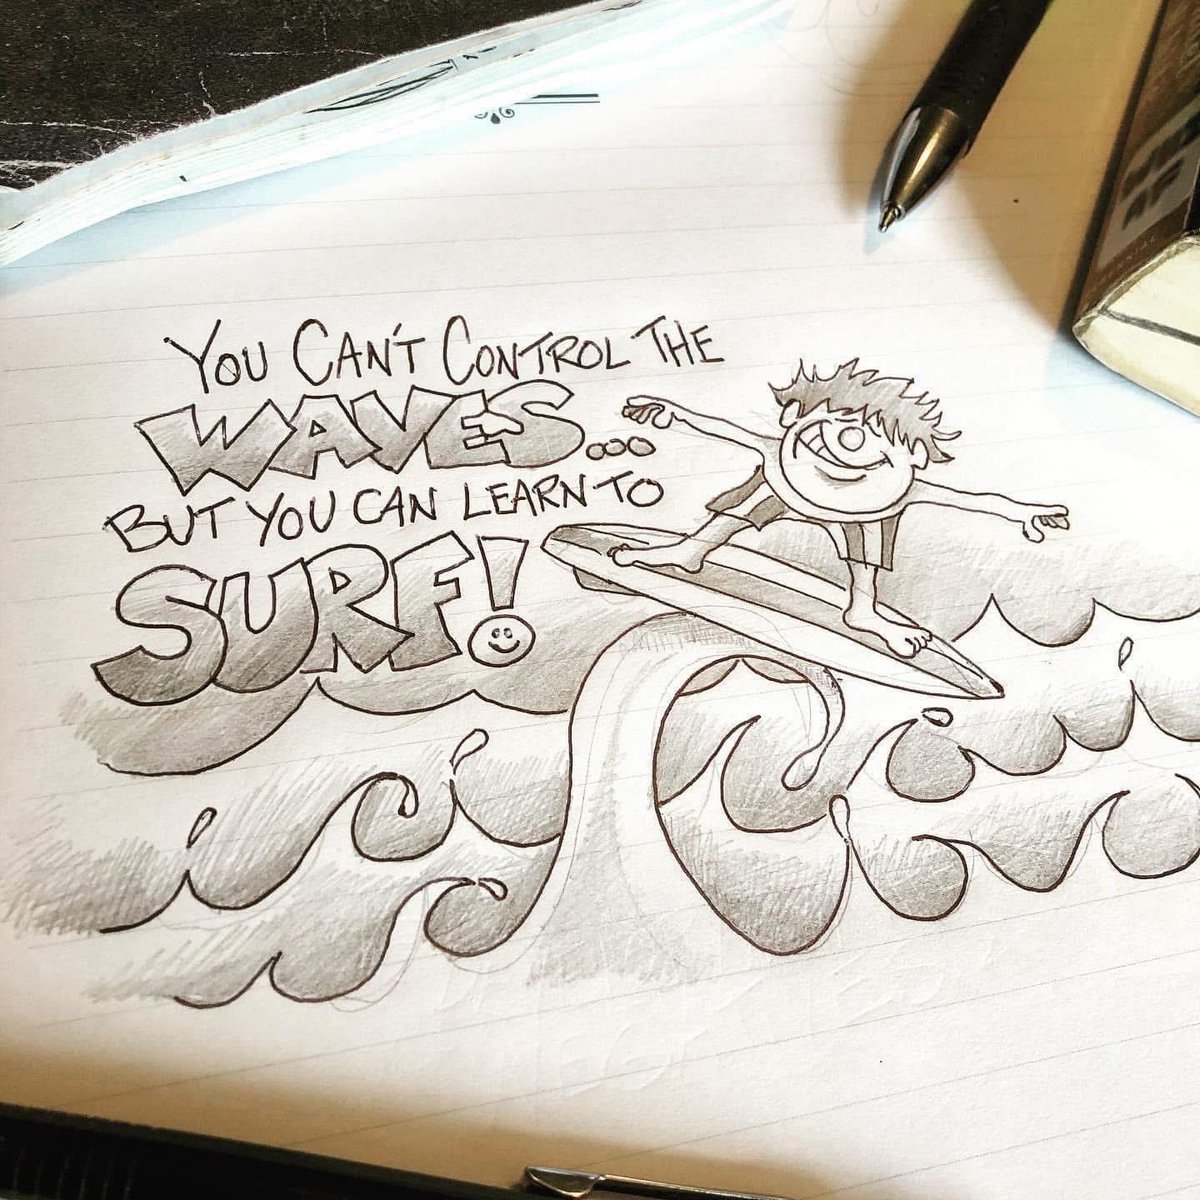 You Can't Control The
WAVES...
But You Can Learn To
SURF!